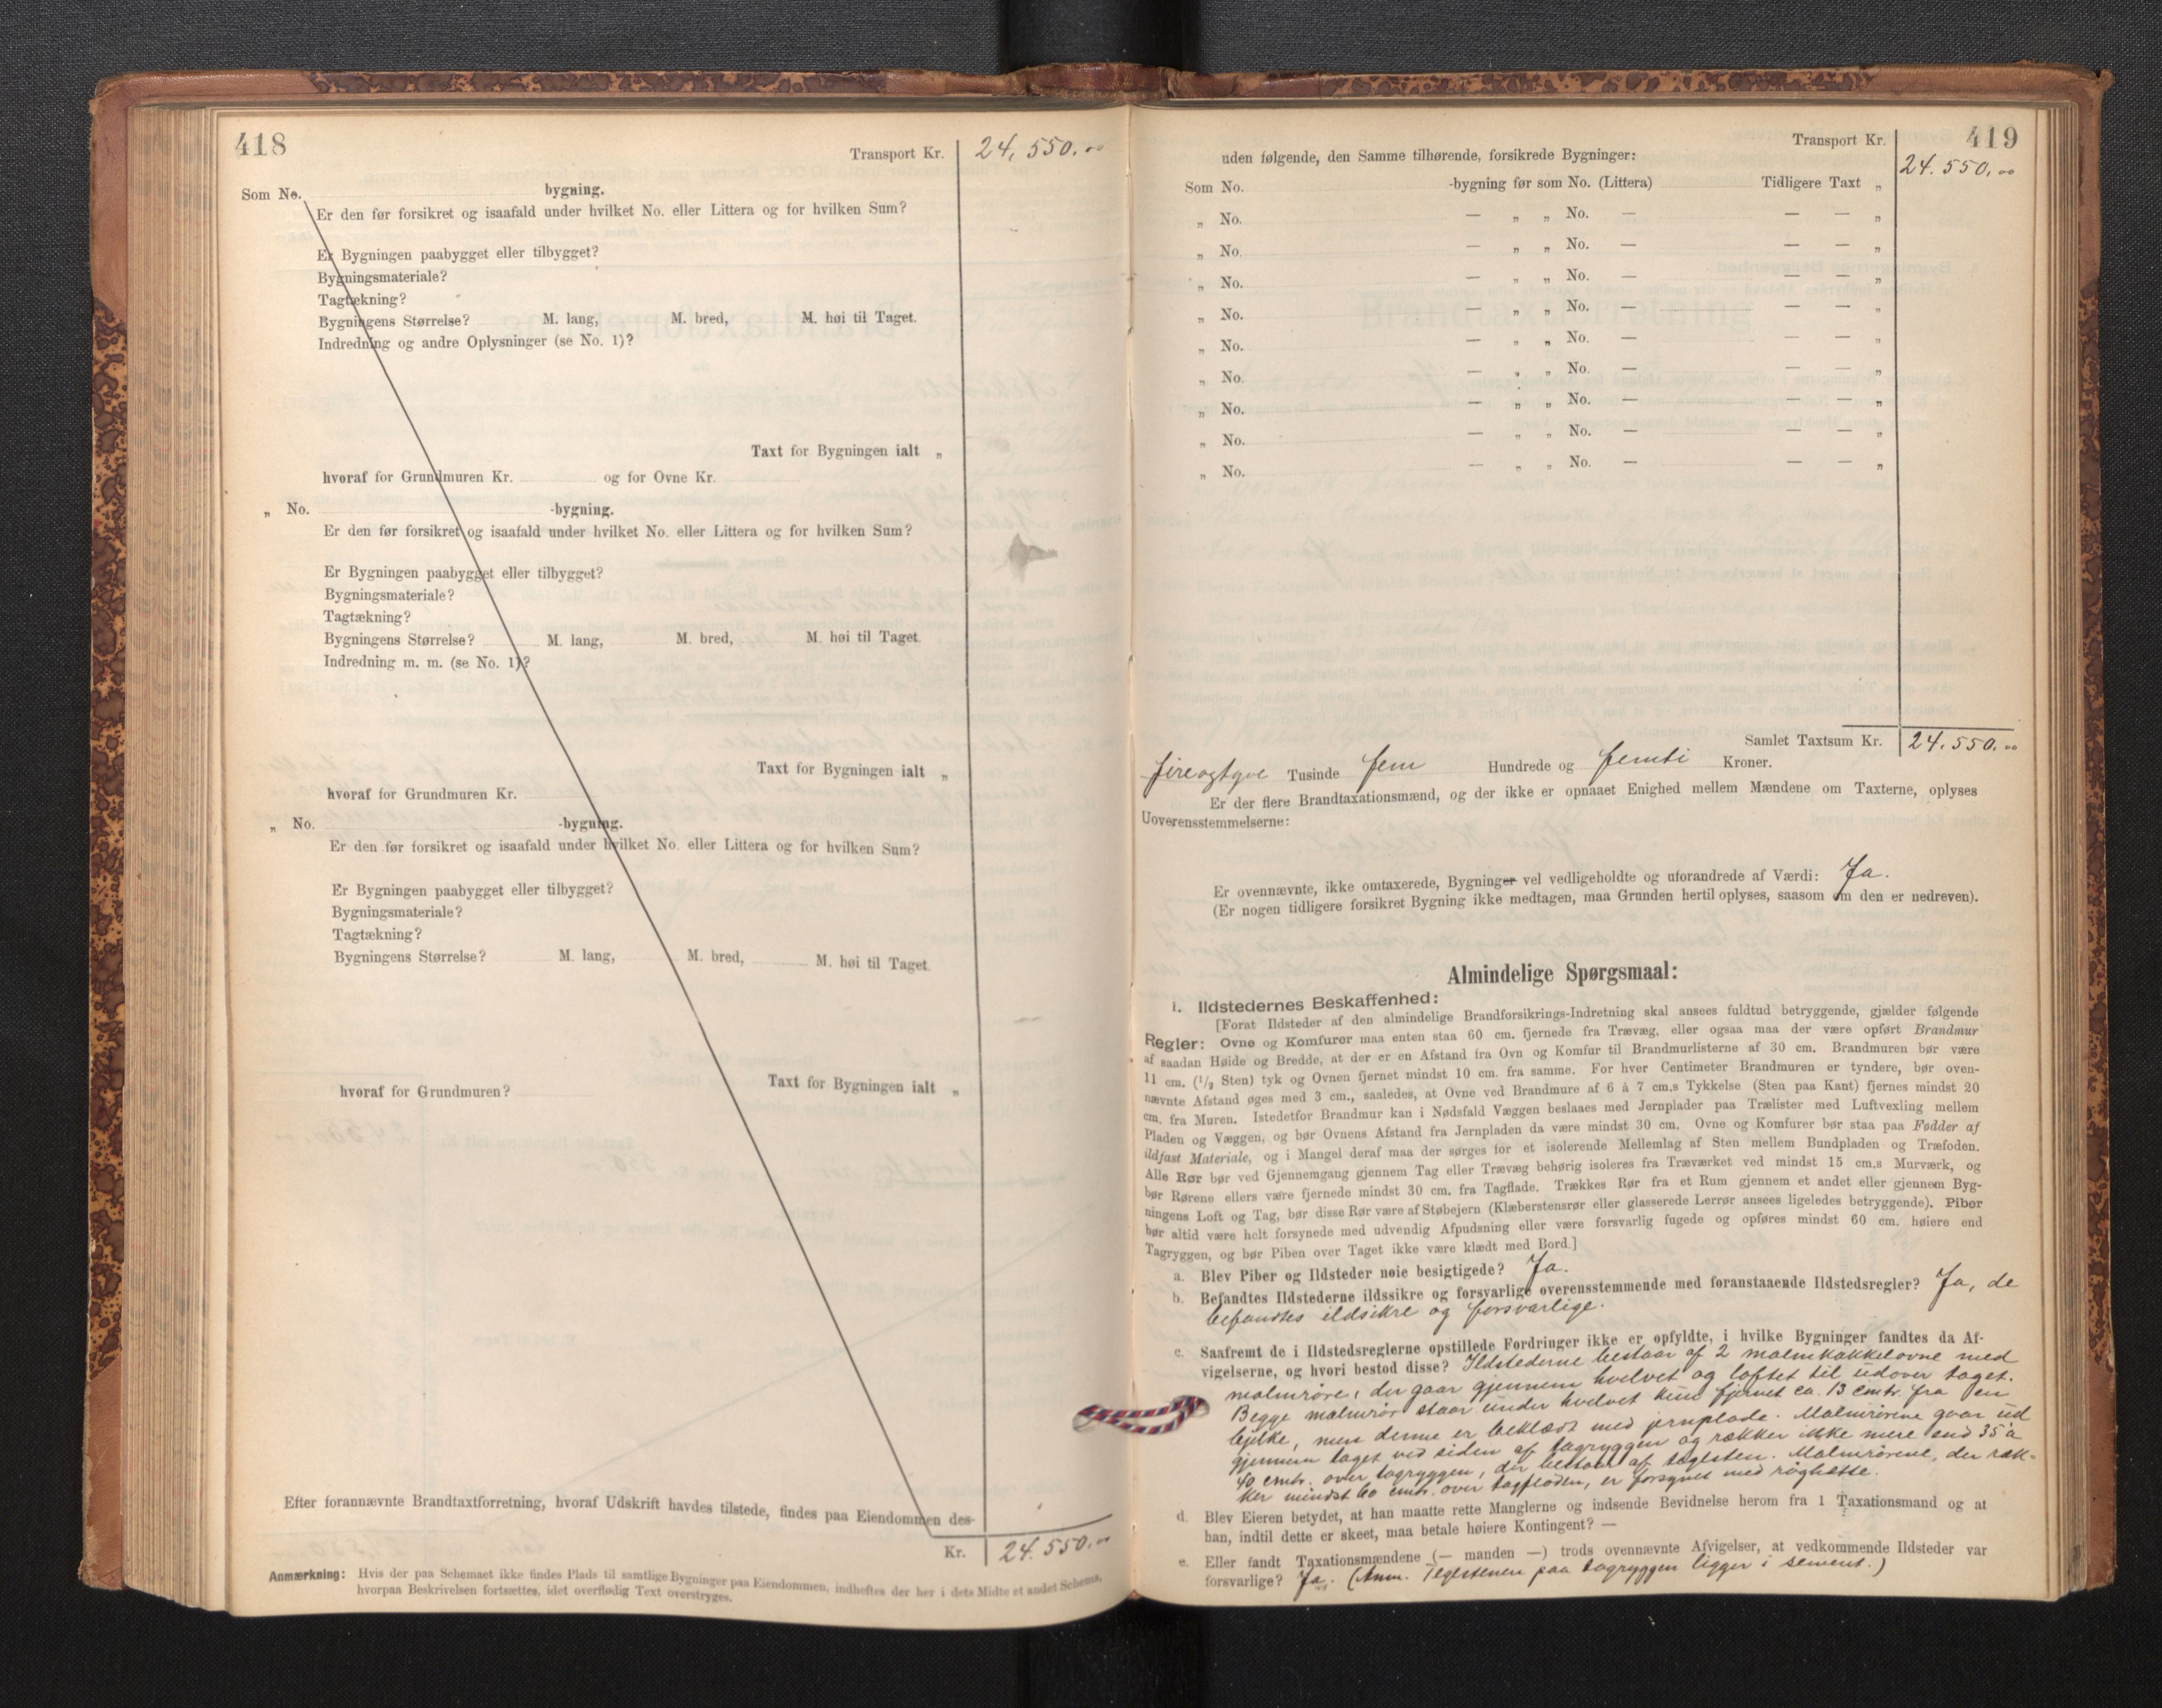 418
Transport Kr. 24,550.00
Som No. bygning.
Er den før forsikret og isaafald under hvilket No. eller Littera og for hvilken Sum?
Er Bygningen paabygget eller tilbygget?
Bygningsmateriale?
Tagtækning?
Bygningens Størrelse? M. lang, M. bred, M. høi til Taget.
Indredning og andre Oplysninger (se No. 1)?
Taxt for Bygningen ialt „
hvoraf for Grundmuren Kr. og for Ovne Kr.
„ No. -bygning.
Er den før forsikret og isaafald under hvilket No. eller Littera og for hvilken Sum?
Er Bygningen paabygget eller tilbygget?
Bygningsmateriale?
Tagtækning?
Bygningens Størrelse? M. lang, M. bred, M. høi til Taget.
Indredning m. m. (se No. 1)?
Taxt for Bygningen ialt „
hvoraf for Grundmuren Kr.
„ No. -bygning.
Er den før forsikret og isaafald under hvilket No. eller Littera og for hvilken Sum?
Er Bygningen paabygget eller tilbygget?
Bygningsmateriale?
Tagtækning?
Bygningens Størrelse? M. lang, M. bred, M. høi til Taget.
Taxt for Bygningen ialt „
hvoraf for Grundmuren?
Efter forannævnte Brandtaxtforretning, hvoraf Udskrift havdes tilstede, findes paa Eiendommen des-
Kr. 24.550.00
Anmærkning: Hvis der paa Schemaet ikke findes Plads til samtlige Bygninger paa Eiendommen, indheftes der her i dets Midte et andet Schema,
hvorpaa Beskrivelsen fortsættes, idet overflødig Text overstryges.
419
Transport Kr. 24.550.00
uden følgende, den Samme tilhørende, forsikrede Bygninger:
Som No. -bygning før som No. (Littera) Tidligere Taxt „
„ No. — „ „ No. — — — „
„ No. — „ „ No. — — — „
„ No. — „ „ No. — — — „
„ No. — „ „ No. — — — „
„ No. — „ „ No. — — — „
„ No. — „ „ No. — — — „
„ No. — „ „ No. — — — „
„ No. — „ „ No. — — — „
„ No. — „ „ No. — — — „
Samlet Taxtsum Kr. 24.550.00
fireogtyve Tusinde fem Hundrede og femti Kroner.
Er der flere Brandtaxationsmænd, og der ikke er opnaaet Enighed mellem Mændene om Taxterne, oplyses
Uoverensstemmelserne:
Er ovennævnte, ikke omtaxerede, Bygninger vel vedligeholdte og uforandrede af Værdi: Ja.
(Er nogen tidligere forsikret Bygning ikke medtagen, maa Grunden hertil oplyses, saasom om den er nedreven).
Almindelige Spørgsmaal:
1. Ildstedernes Beskaffenhed:
[Forat Ildsteder af den almindelige Brandforsikrings-Indretning skal ansees fuldtud betryggende, gjælder følgende
Regler: Ovne og Komfurer maa enten staa 60 cm. fjernede fra Trævæg, eller ogsaa maa der være opført Brandmur
af saadan Høide og Bredde, at der er en Afstand fra Ovn og Komfur til Brandmurlisterne af 30 cm. Brandmuren bør være
11 cm. (1/2 Sten) tyk og Ovnen fjernet mindst 10 cm. fra samme. For hver Centimeter Brandmuren er tyndere, bør oven-
nævnte Afstand øges med 3 cm., saaledes, at Ovne ved Brandmure af 6 à 7 cm.s Tykkelse (Sten paa Kant) fjernes mindst 20
cm. fra Muren. Istedetfor Brandmur kan i Nødsfald Væggen beslaaes med Jernplader paa Trælister med Luftvexling mellem
Pladen og Væggen, og bør Ovnens Afstand fra Jernpladen da være mindst 30 cm. Ovne og Komfurer bør staa paa Fødder af
ildfast Materiale, og i Mangel deraf maa der sørges for et isolerende Mellemlag af Sten mellem Bundpladen og Træfoden.
Alle Rør bør ved Gjennemgang gjennem Tag eller Trævæg behørig isoleres fra Træværket ved mindst 15 cm.s Murværk, og
bør Rørene ellers være fjernede mindst 30 cm. fra Tagflade. Trækkes Rør fra et Rum gjennem et andet eller gjennem Byg-
ningens Loft og Tag, bør disse Rør være af Støbejern (Klæberstensrør eller glasserede Lerrør ansees ligeledes betryggende). Piber
bør altid være helt forsynede med udvendig Afpudsning eller være forsvarlig fugede og opføres mindst 60 cm. høiere end
Tagryggen, og bør Piben over Taget ikke være klædt med Bord.]
a. Blev Piber og Ildsteder nøie besigtigede? Ja.
b. Befandtes Ildstederne ildssikre og forsvarlige overensstemmende med foranstaaende Ildstedsregler? Ja, de
befandtes ildsikre og forsvarlige.
c. Saafremt de i Ildstedsreglerne opstillede Fordringer ikke er opfyldte, i hvilke Bygninger fandtes da Af-
vigelserne, og hvori bestod disse? Ildstederne bestaar af 2 malmkakkelovne med
malmrøre, der gaar gjennem hvelvet og loftet til udover taget.
Begge malmrør staar under hvelvet kun fjernet ca. 13 cmtr. fra en
bjelke, men denne er beklædt med jernplade. Malmrørene gaar ud
gjennem taget ved siden af tagryggen og rækker ikke mere end 35 à
40 cmtr. over tagryggen, der bestaar af taglsten. Malmrørene, der ræk-
ker mindst 60 cmtr. over tagfladen, er forsynet med røghætte.
d. Blev Eieren betydet, at han maatte rette Manglerne og indsende Bevidnelse herom fra 1 Taxationsmand og at
han, indtil dette er skeet, maa betale høiere Kontingent? —
e. Eller fandt Taxationsmændene (— manden —) trods ovennævnte Afvigelser, at vedkommende Ildsteder var
forsvarlige? Ja. (Anm. Teglstenen paa tagryggen ligger i sement.)